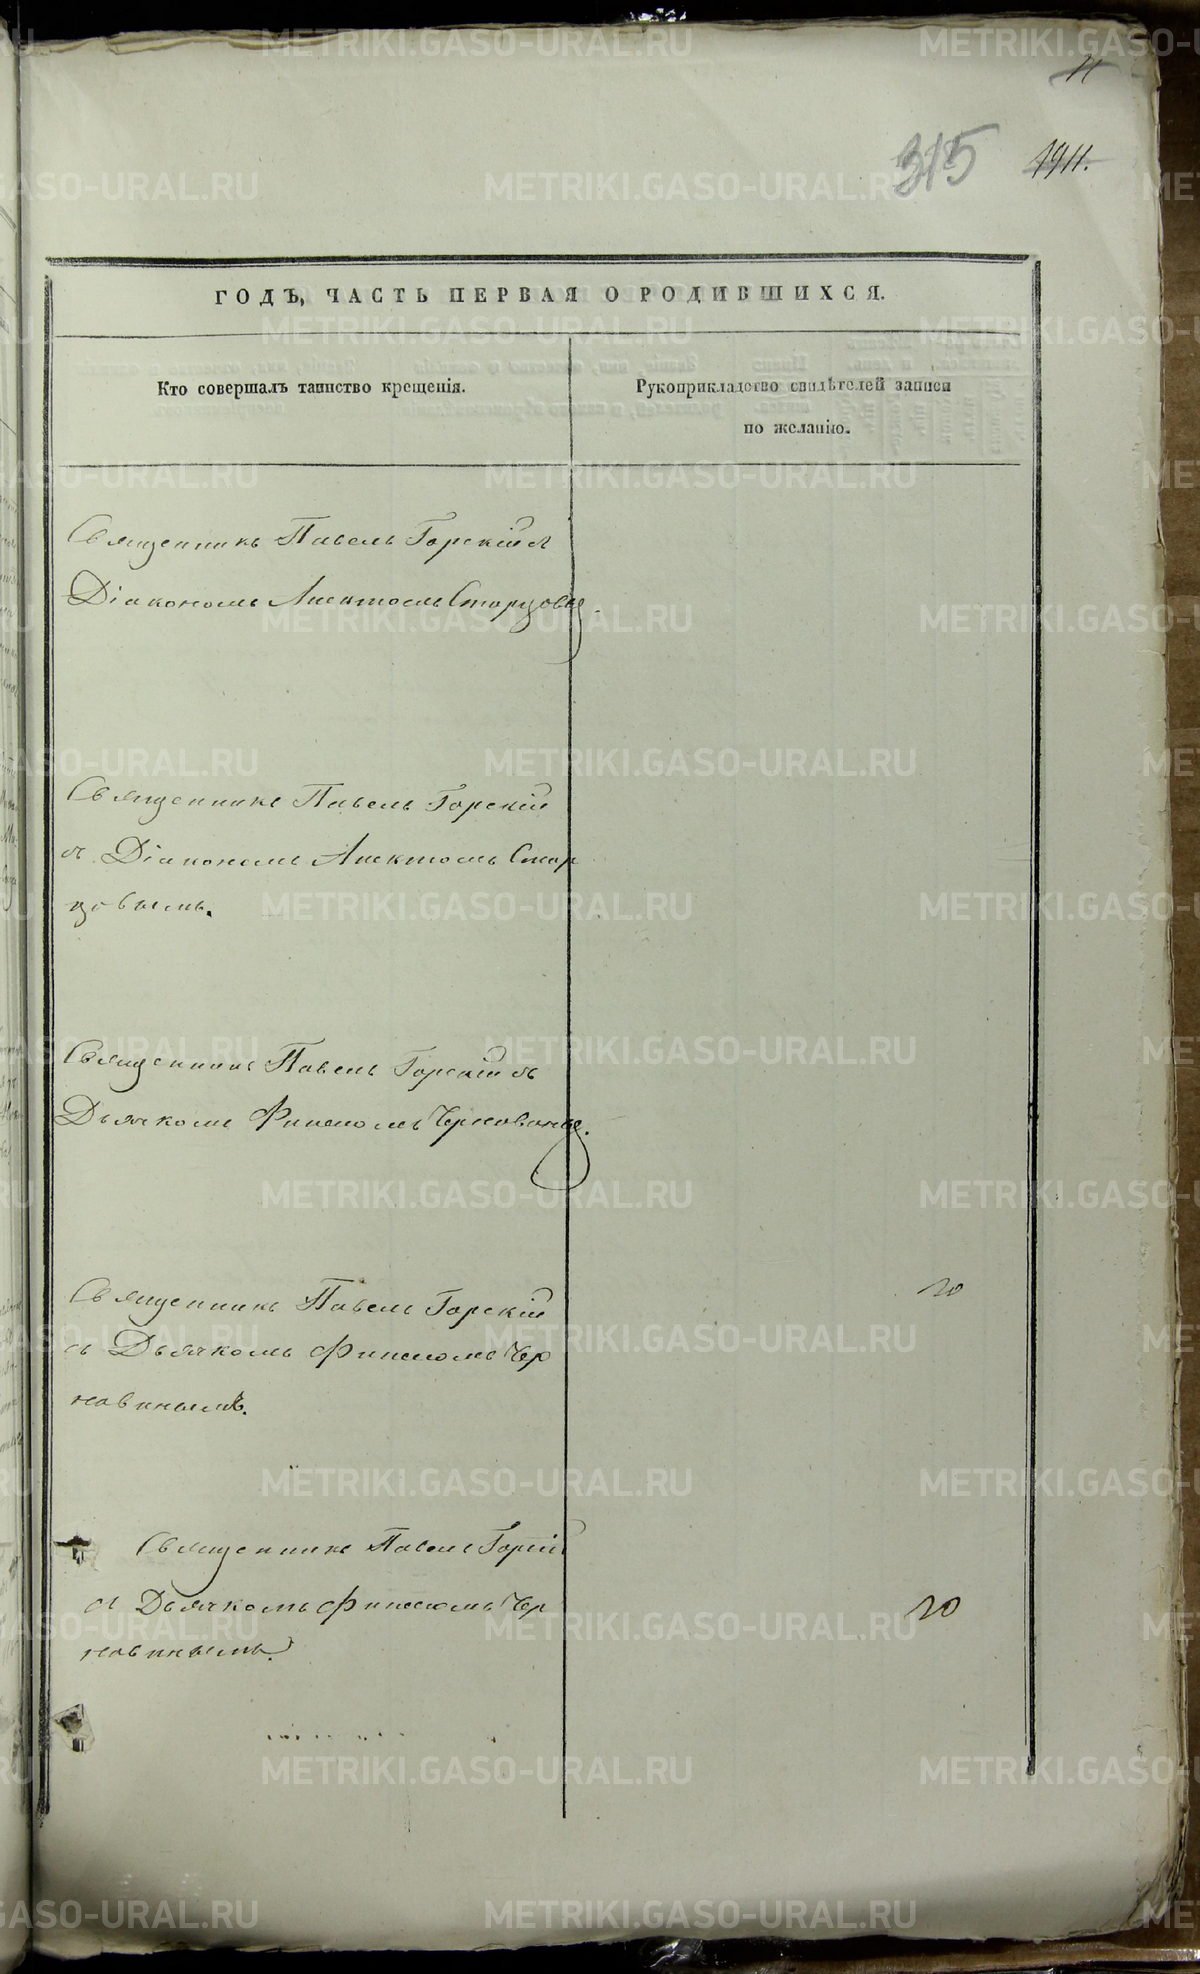 11
315 1911.
ГОДЪ, ЧАСТЬ ПЕРВАЯ О РОДИВШИХСЯ.
Кто совершалъ таинство крещенія.
Рукоприкладство свидѣтелей записи
по желанію.
Священникъ Павелъ Горскій с
Діакономъ Аѳектомъ Старцовы
Священникъ Павелъ Горскій
съ Діакономъ Стар
цовымъ.
Священникъ Павелъ Горскій съ
Дьячкомъ Финеесомъ Черновины.
Священникъ Павелъ Горскій
съ Дьячкомъ Финеесомъ Чер
новинымъ.
20
Священникъ Павелъ Горскій
съ Дьячкомъ Финеесомъ Чер
новинымъ.
20
METRIKI.GASO-URAL.RU